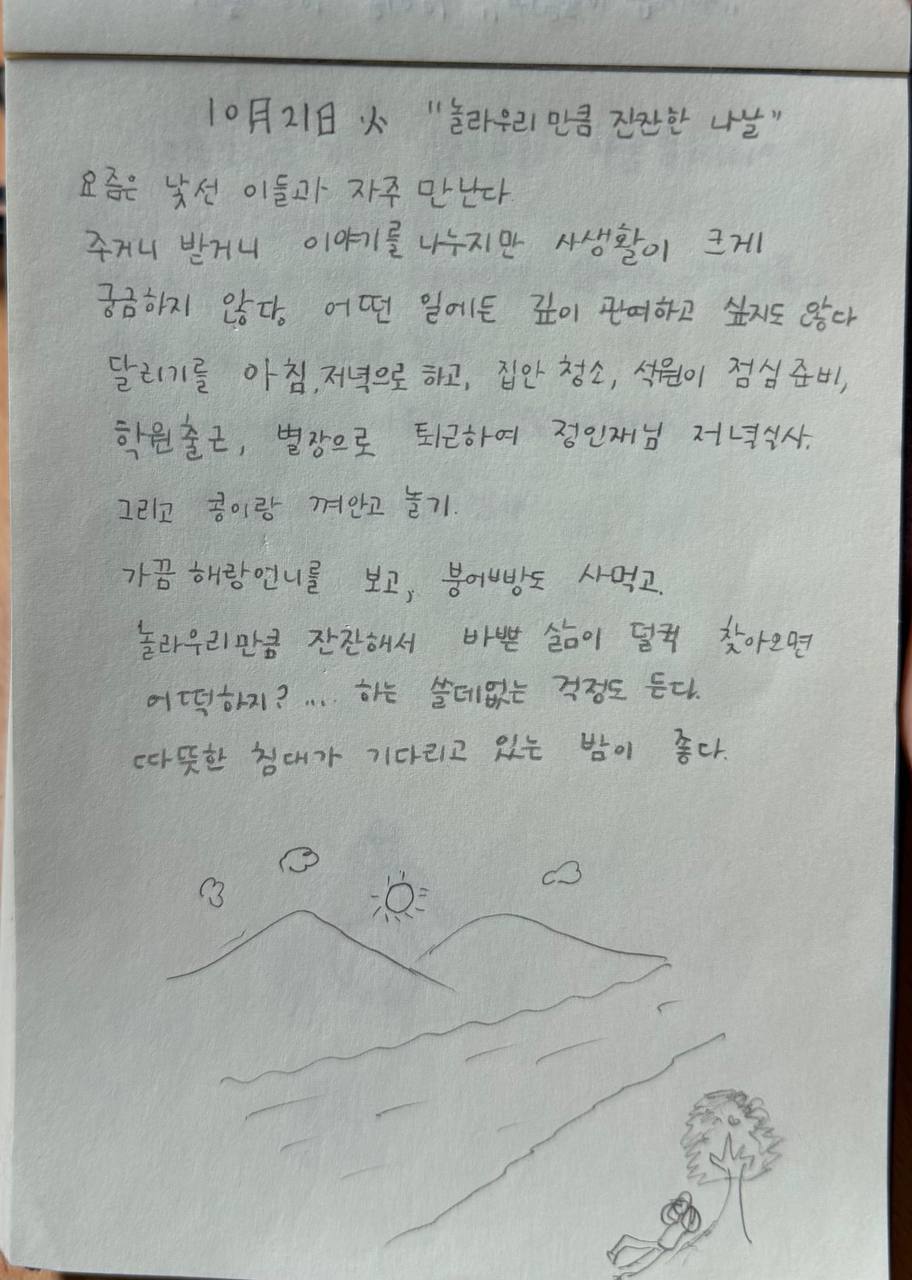 10月21日 火 "놀라우리만큼 잔잔한 나날"
요즘은 낯선 이들과 자주 만난다
주거니 받거니 이야기를 나누지만 사생활이 크게
궁금하지 않다. 어떤 일에든 깊이 관여하고 싶지도 않다
달리기를 아침, 저녁으로 하고, 집안 청소, 석원이 점심 준비,
학원출근, 별장으로 퇴근하여 정인재님 저녁식사.
그리고 콩이랑 껴안고 놀기.
가끔 해랑언니를 보고, 붕어빵도 사먹고.
놀라우리만큼 잔잔해서 바쁜 삶이 덜컥 찾아오면
어떡하지? ... 하는 쓸데없는 걱정도 든다.
따뜻한 침대가 기다리고 있는 밤이 좋다.